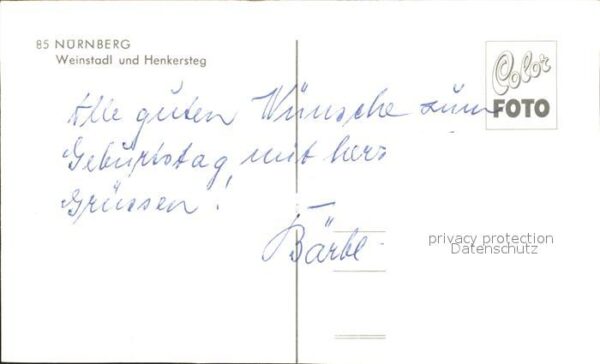 85 NÜRNBERG
Weinstadl und Henkersteg
Color
FOTO
Alle guten Wünsche zum
Geburtstag, mit herz
Grüssen!
Bärbl
privacy protection
Datenschutz